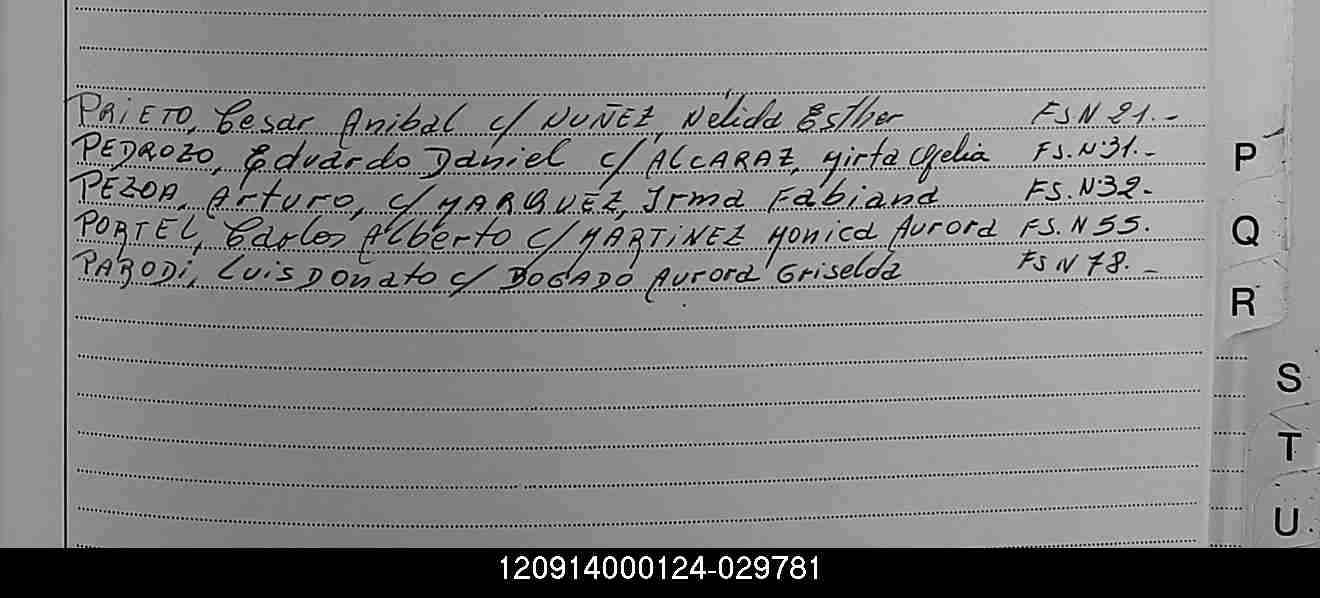 PRIETO, Cesar Anibal c/ NUÑEZ, Nélida Esther FS N 21.-
PEDROZO, Eduardo Daniel c/ ALCARAZ, Mirta Ofelia FS. N°31.-
PEZOA, Arturo, c/ MARQUEZ, Irma Fabiana FS. N°32-
PORTEL, Carlos Alberto c/ MARTiNEZ Monica Aurora FS. N 55.
PARODi, Luis Donato c/ BOGADO Aurora Griselda FS N 78.-
P
Q
R
S
T
U
120914000124-029781